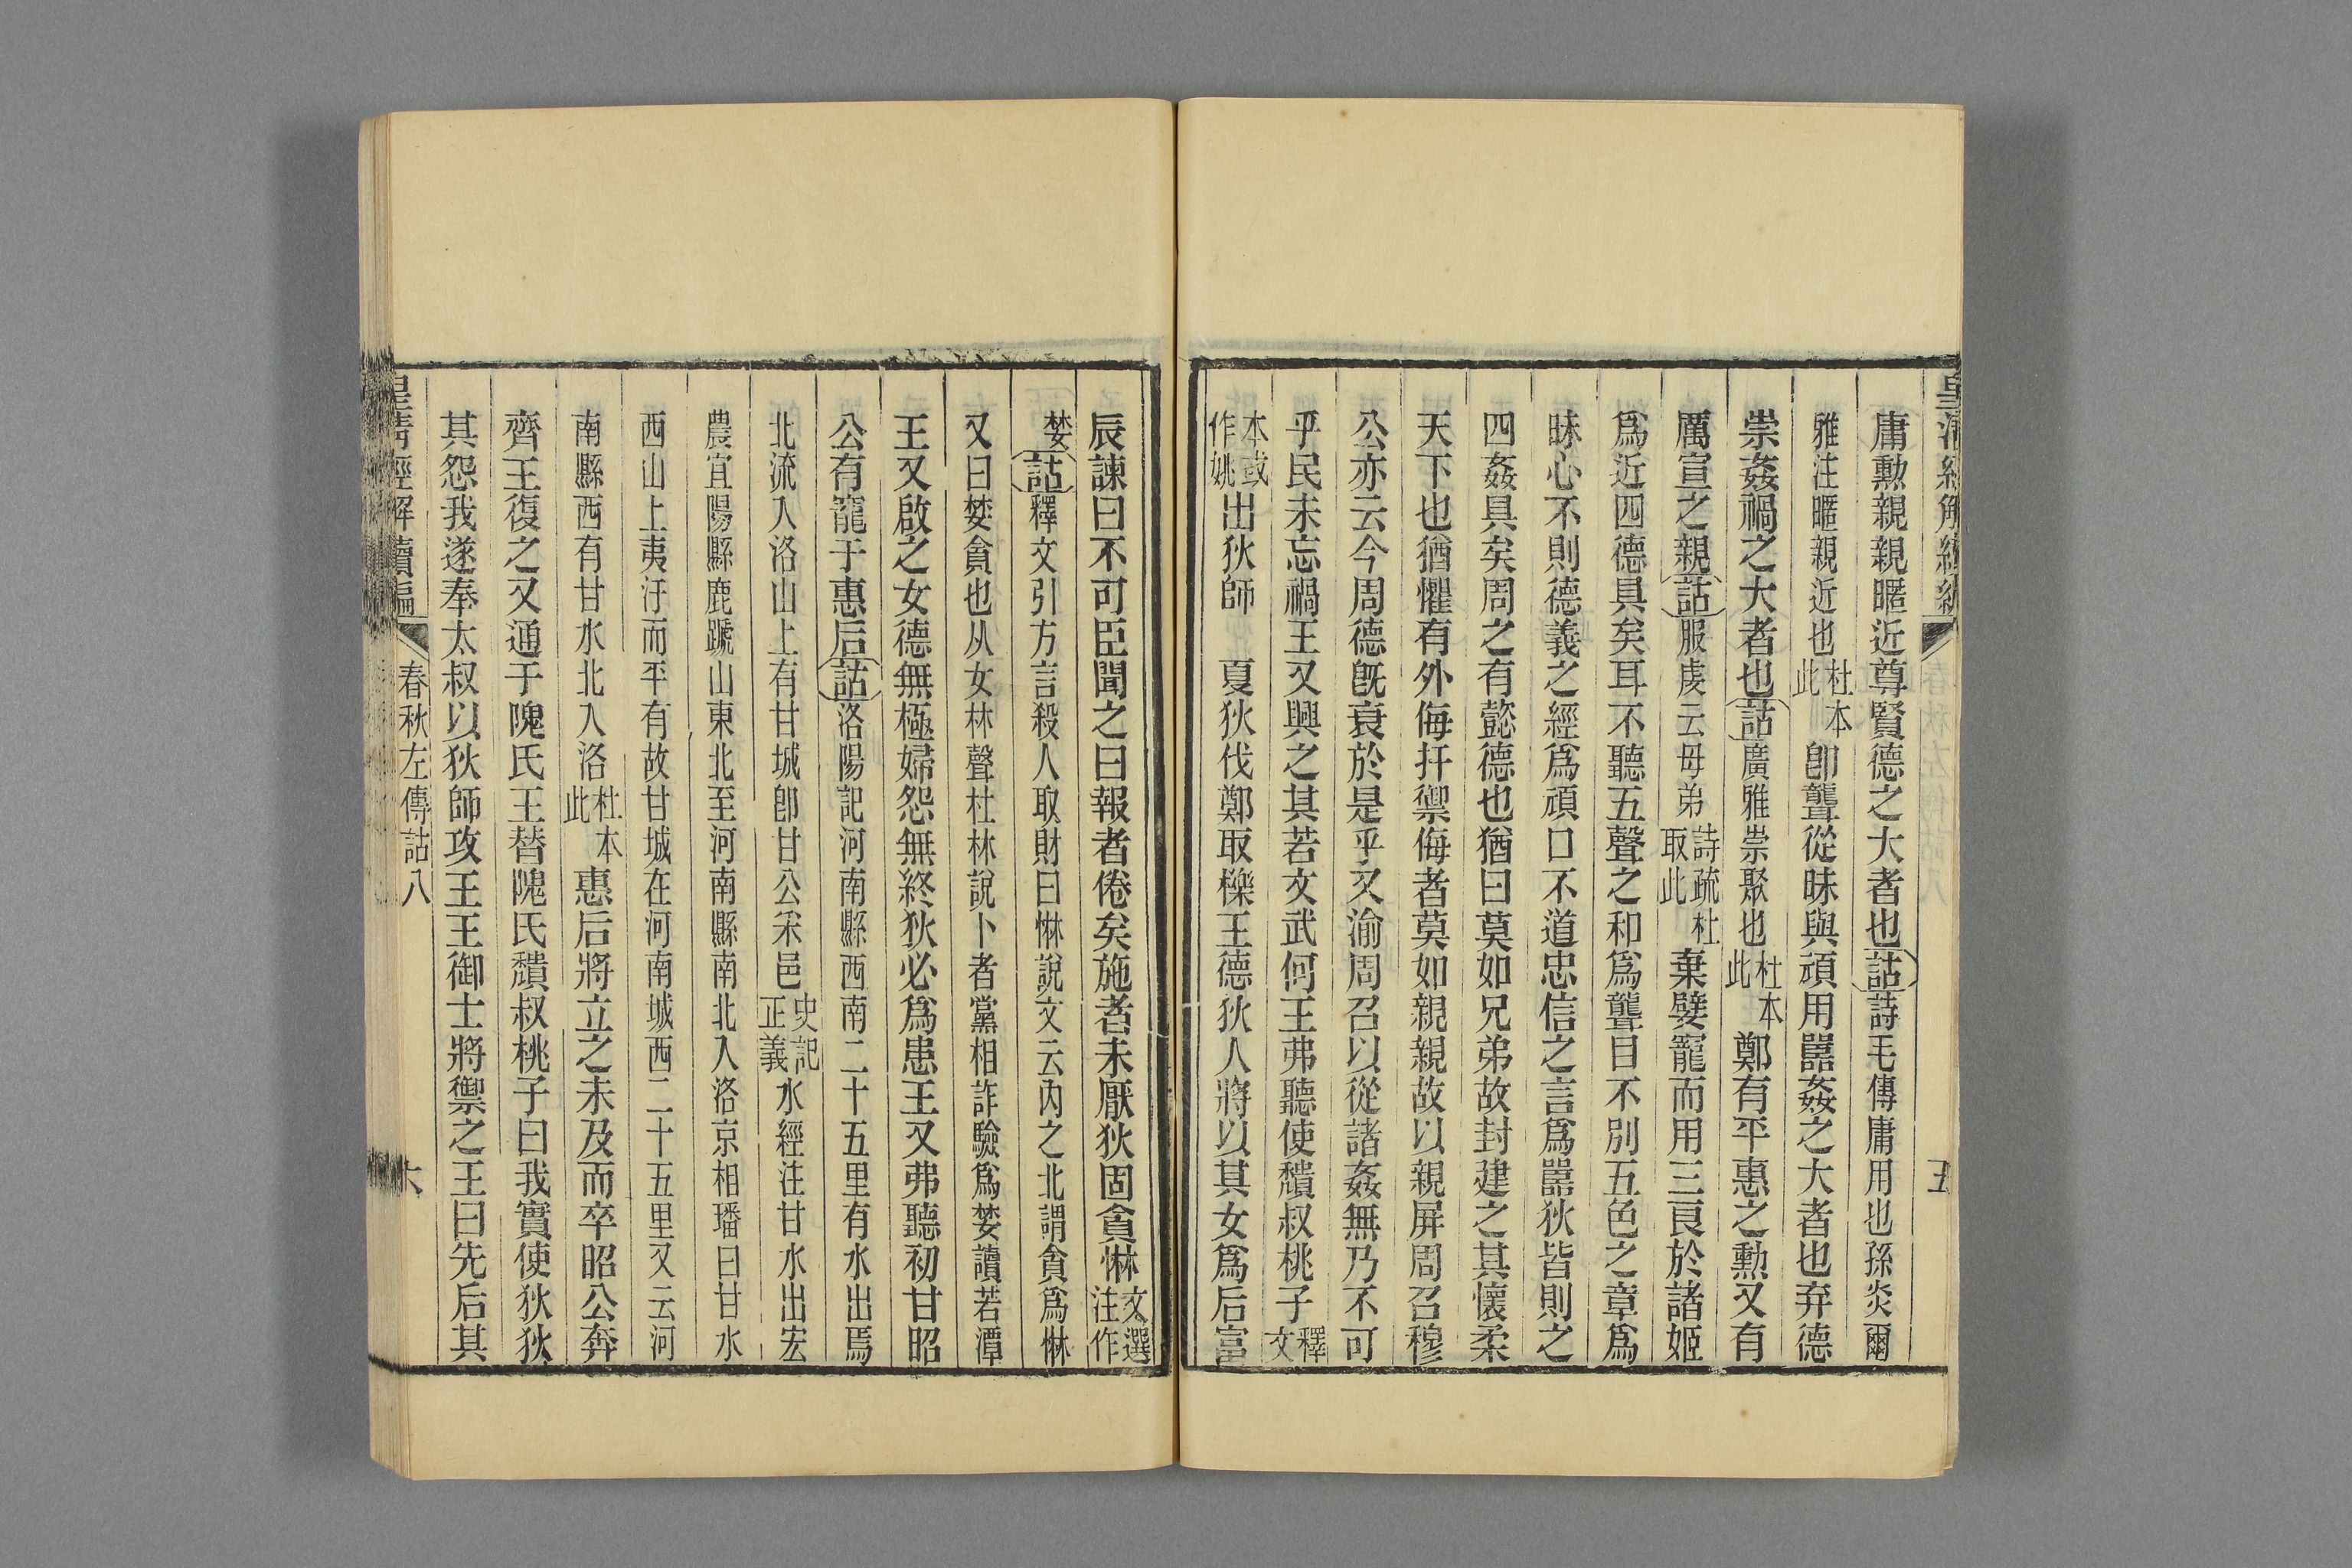 庸勲親親暱近尊賢德之大者也詁詩毛傳庸用也孫炎爾
雅注暱親近也杜本此卽聾從昧與頑用嚚姦之大者也弃德
崇姦禍之大者也詁廣雅崇聚也杜本此鄭有平惠之勲又有
厲宣之親詁服虔云母弟詩疏杜取此棄嬖寵而用三良於諸姬
爲近四德具矣耳不聽五聲之和爲聾目不別五色之章爲
昧心不則德義之經爲頑口不道忠信之言爲嚚狄皆則之
四姦具矣周之有懿德也猶曰莫如兄弟故封建之其懷柔
天下也猶懼有外侮扞禦侮者莫如親親故以親屏周召穆
公亦云今周德旣衰於是乎又渝周召以從諸姦無乃不可
乎民未忘禍王又興之其若文武何王弗聽使穨叔桃子釋文
本或作姚出狄師 夏狄伐鄭取櫟王德狄人將以其女爲后富
五
辰諫曰不可臣聞之曰報者倦矣施者未厭狄固貪惏文選注作
婪詁釋文引方言殺人取財曰惏說文云內之北謂貪爲惏
又曰婪貪也从女林聲杜林說卜者黨相詐驗爲婪讀若潭
王又啟之女德無極婦怨無終狄必爲患王又弗聽初甘昭
公有寵于惠后詁洛陽記河南縣西南二十五里有水出焉
北流入洛山上有甘城卽甘公采邑史記正義水經注甘水出宏
農宜陽縣鹿蹏山東北至河南縣南北入洛京相璠曰甘水
西山上夷汙而平有故甘城在河南城西二十五里又云河
南縣西有甘水北入洛杜本此惠后將立之未及而卒昭公奔
齊王復之又通于隗氏王替隗氏穨叔桃子曰我實使狄狄
其怨我遂奉太叔以狄師攻王王御士將禦之王曰先后其
皇清經解續編 春秋左傳詁八 六